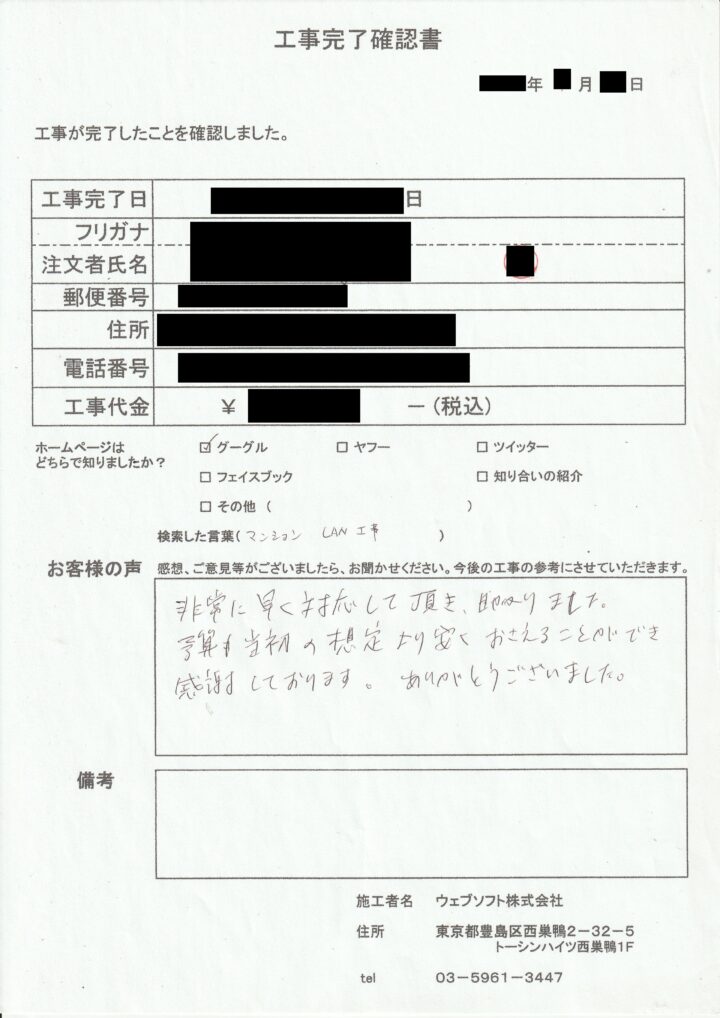 工事完了確認書
年 月 日
工事が完了したことを確認しました。
工事完了日 日
フリガナ
注文者氏名
郵便番号
住所
電話番号
工事代金 ¥ ー(税込)
ホームページは
どちらで知りましたか?
☑ グーグル □ ヤフー □ ツイッター
□ フェイスブック □ 知り合いの紹介
□ その他 ( )
検索した言葉(マンション LAN 工事 )
お客様の声 感想、ご意見等がございましたら、お聞かせください。今後の工事の参考にさせていただきます。
非常に早く対応して頂き、助かりました。
予算も当初の想定より安くおさえることができ
感謝しております。ありがとうございました。
備考
施工者名 ウェブソフト株式会社
住所 東京都豊島区西巣鴨2-32-5
トーシンハイツ西巣鴨1F
tel 03-5961-3447